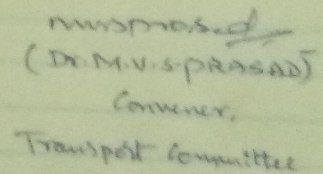 mvsprasad
(Dr. M.V.S. PRASAD)
Convener,
Transport Committee